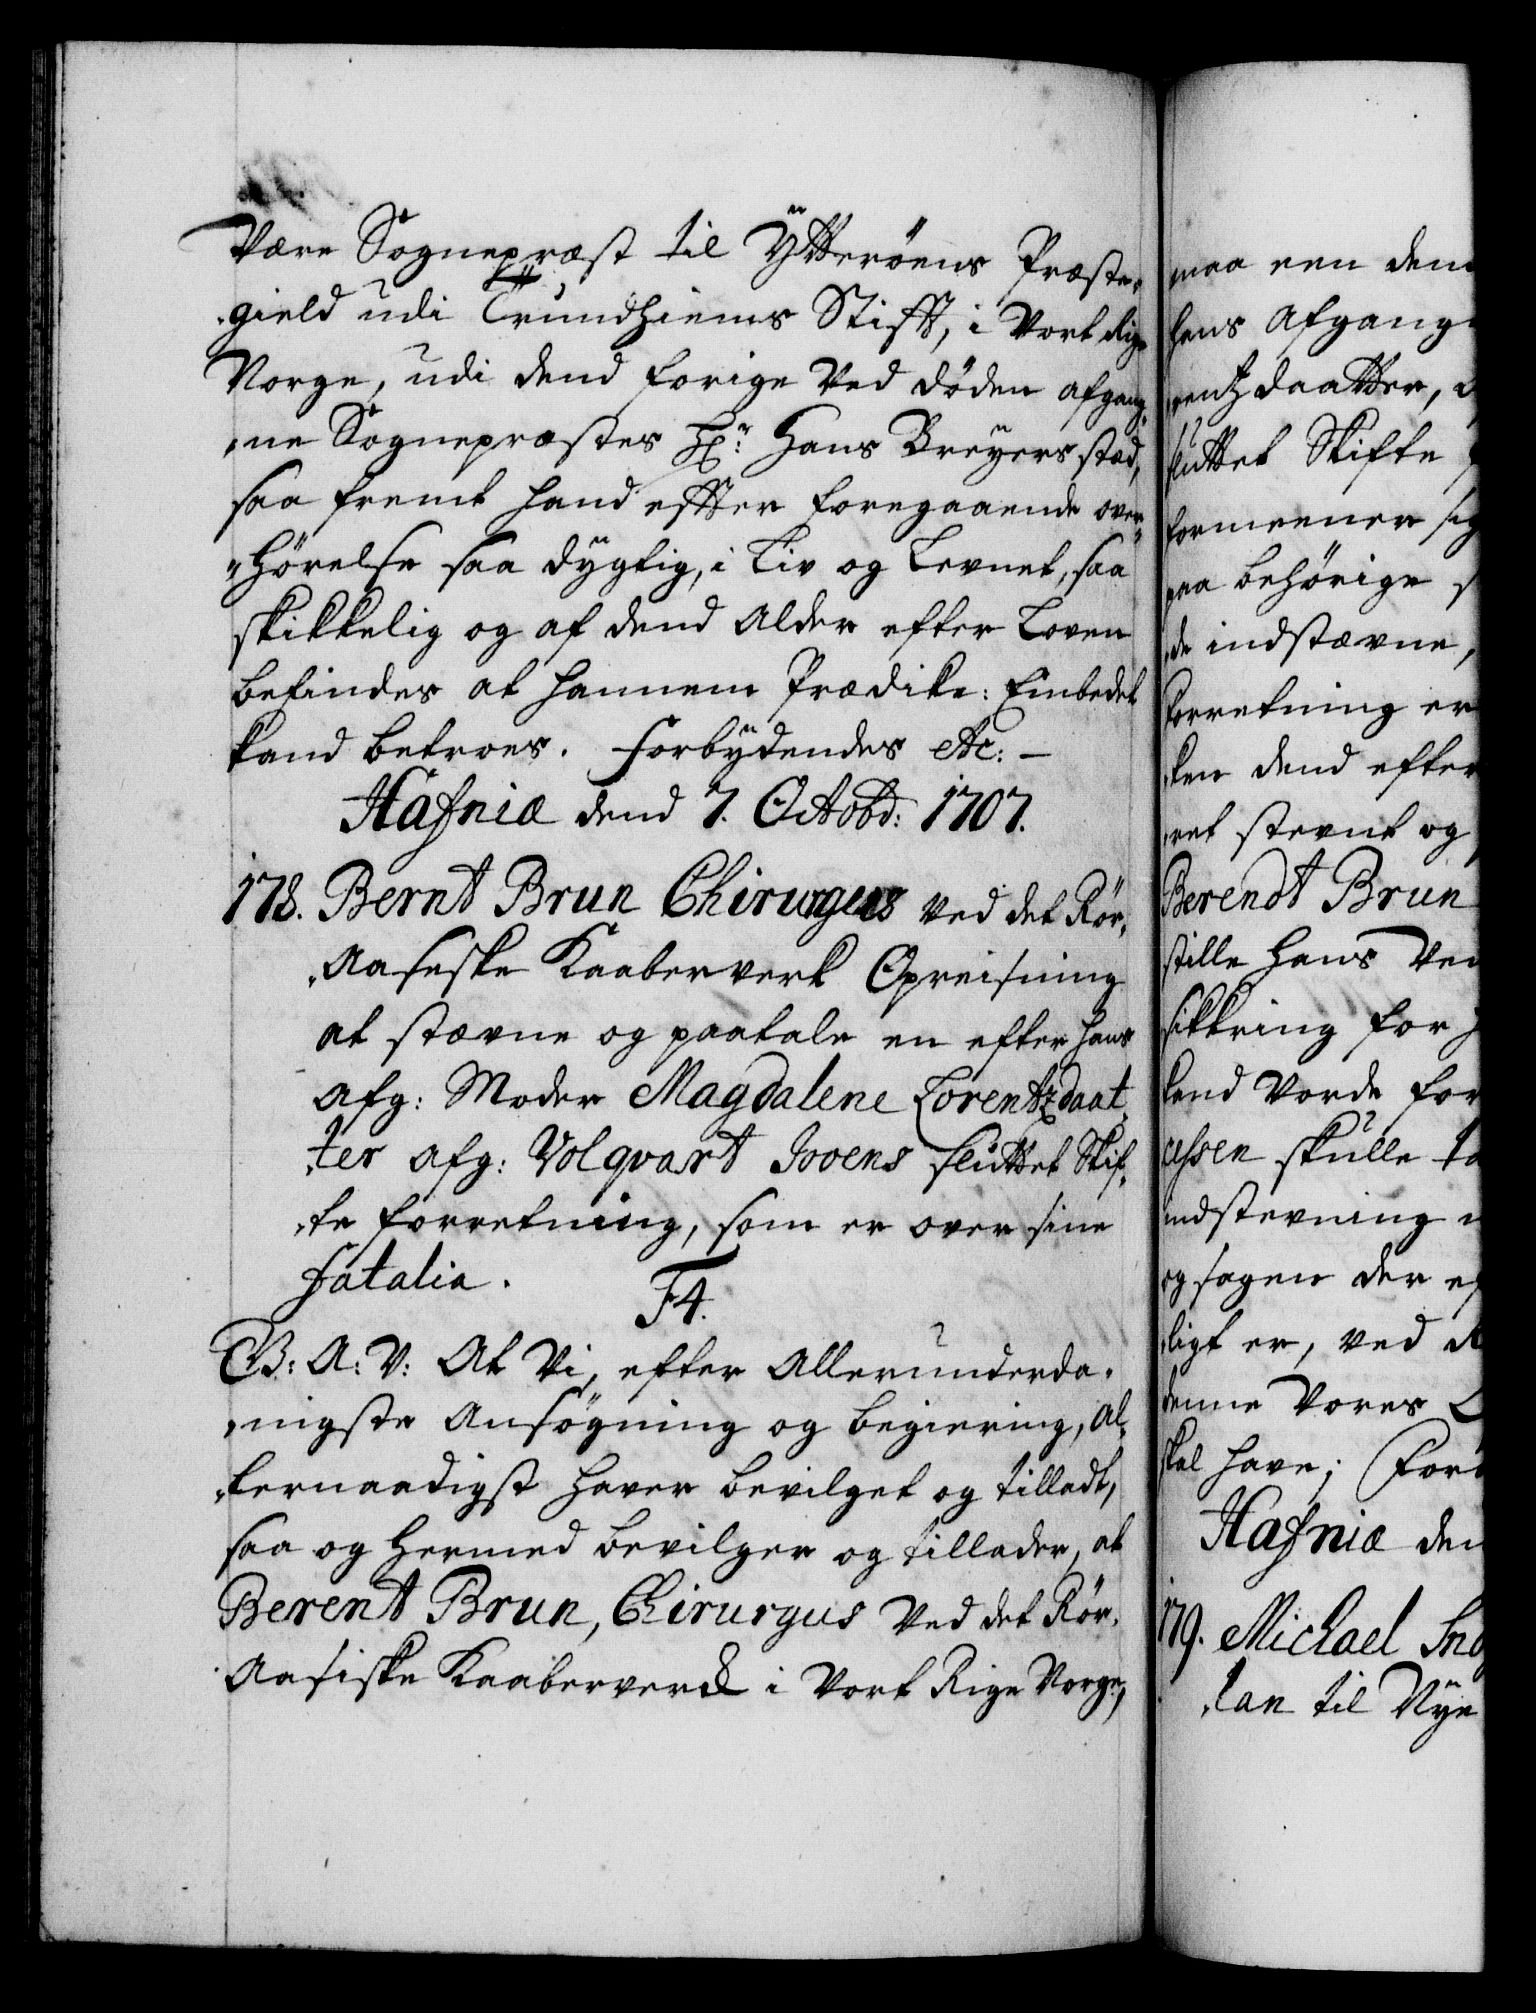 Være Sognepræst til Ÿtterøens Præste-
gield udi Trundhiems Stifft, i Vort Rige
Norge, udi dend forige Ved døden afgang-
ne Sognepræstes Hr: Hans Breÿers stæd,
saa fremt hand effter foregaaende over-
hørelse saa dÿgtig, i Liv og Levnet, saa
skikkelig og af dend Alder efter Loven
befindes at hannem Prædike-Embedet
kand betroes. Forbÿdendes etc: —
Hafniæ dend 7. Octobr: 1707.
178. Bernt Brun Chirurgus ved det Rør-
Aaseske Kaaberverk Opreisning
at stævne og paatale en efter hans
afg: Moder Magdalene Lorentzdaat-
ter afg: Volqvart Jovens sluttet Skif-
te forretning, som er over sine
fatalia.
F4.
G. B: A: V: At Vi, efter Allerunderda-
nigste Ansøgning og begiering, Al-
lernaadigst haver bevilget og tilladt,
saa og hermed bevilger og tillader, at
Berent Brun, Chirurgus Ved det Rør-
Aasiske Kaaberverck i Vort Rige Norge,
maa een den
hans Afgang
rentzdaatter,
sluttet Skifte
formeener sig
paa behørige
de indstævne,
Forretning er
ken dend efter
ret stevnt og
Berendt Brun
stille hans Ved
sikkring for
kand Vorde for
cessen skulle
indstevning
og sagen der
ligt er, ved
denne Vores
skal have; For
Hafniæ den
179. Michael
lan til Nÿe